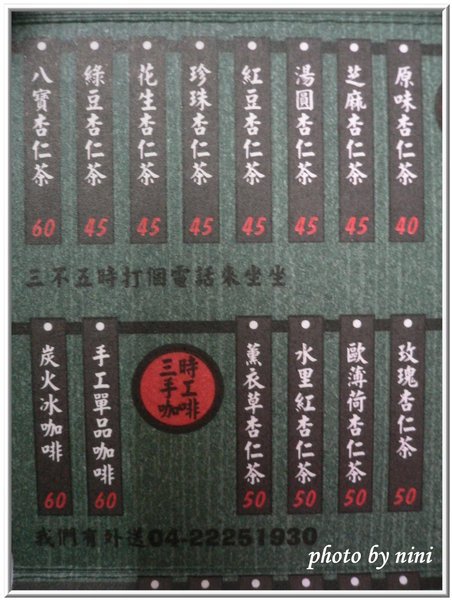 原味杏仁茶 40
芝麻杏仁茶 45
湯圓杏仁茶 45
紅豆杏仁茶 45
珍珠杏仁茶 45
花生杏仁茶 45
綠豆杏仁茶 45
八寶杏仁茶 60
三不五時打個電話來坐坐
玫瑰杏仁茶 50
歐薄荷杏仁茶 50
水里紅杏仁茶 50
薰衣草杏仁茶 50
三時
手工
咖啡
手工單品咖啡 60
炭火冰咖啡 60
我們有外送04-22251930
photo by nini